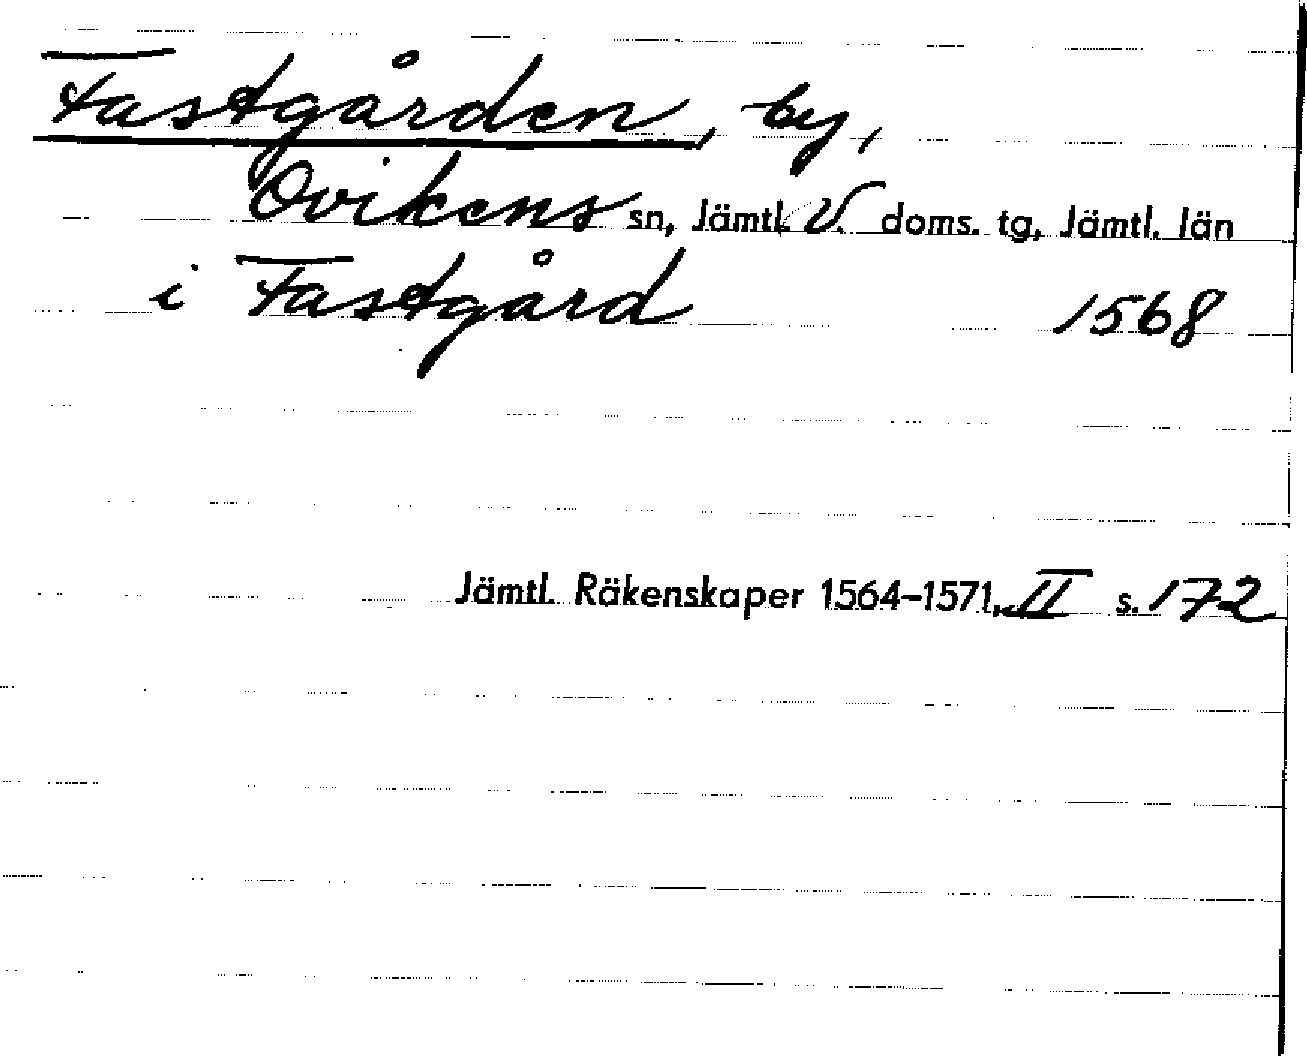 Fastgården, by,
Ovikens sn, Jämtl. V. doms. tg, Jämtl. län
i Fastgård 1568
Jämtl. Räkenskaper 1564–1571, II s. 172